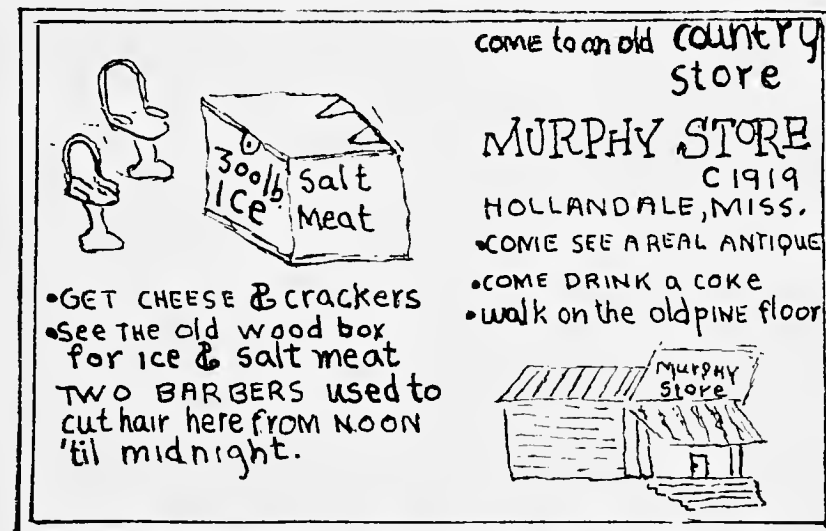 300lb.
ICe
Salt
Meat
•GET CHEESE & crackers
•See THE old wood box
for ice & salt meat
TWO BARBERS used to
cut hair here FROM NOON
'til midnight.
come to an old country
store
MURPHY STORE
C 1919
HOLLANDALE, MISS.
•COME SEE A REAL ANTIQUE
•COME DRINK a COKE
•walk on the old PINE floor
MURPHY
Store